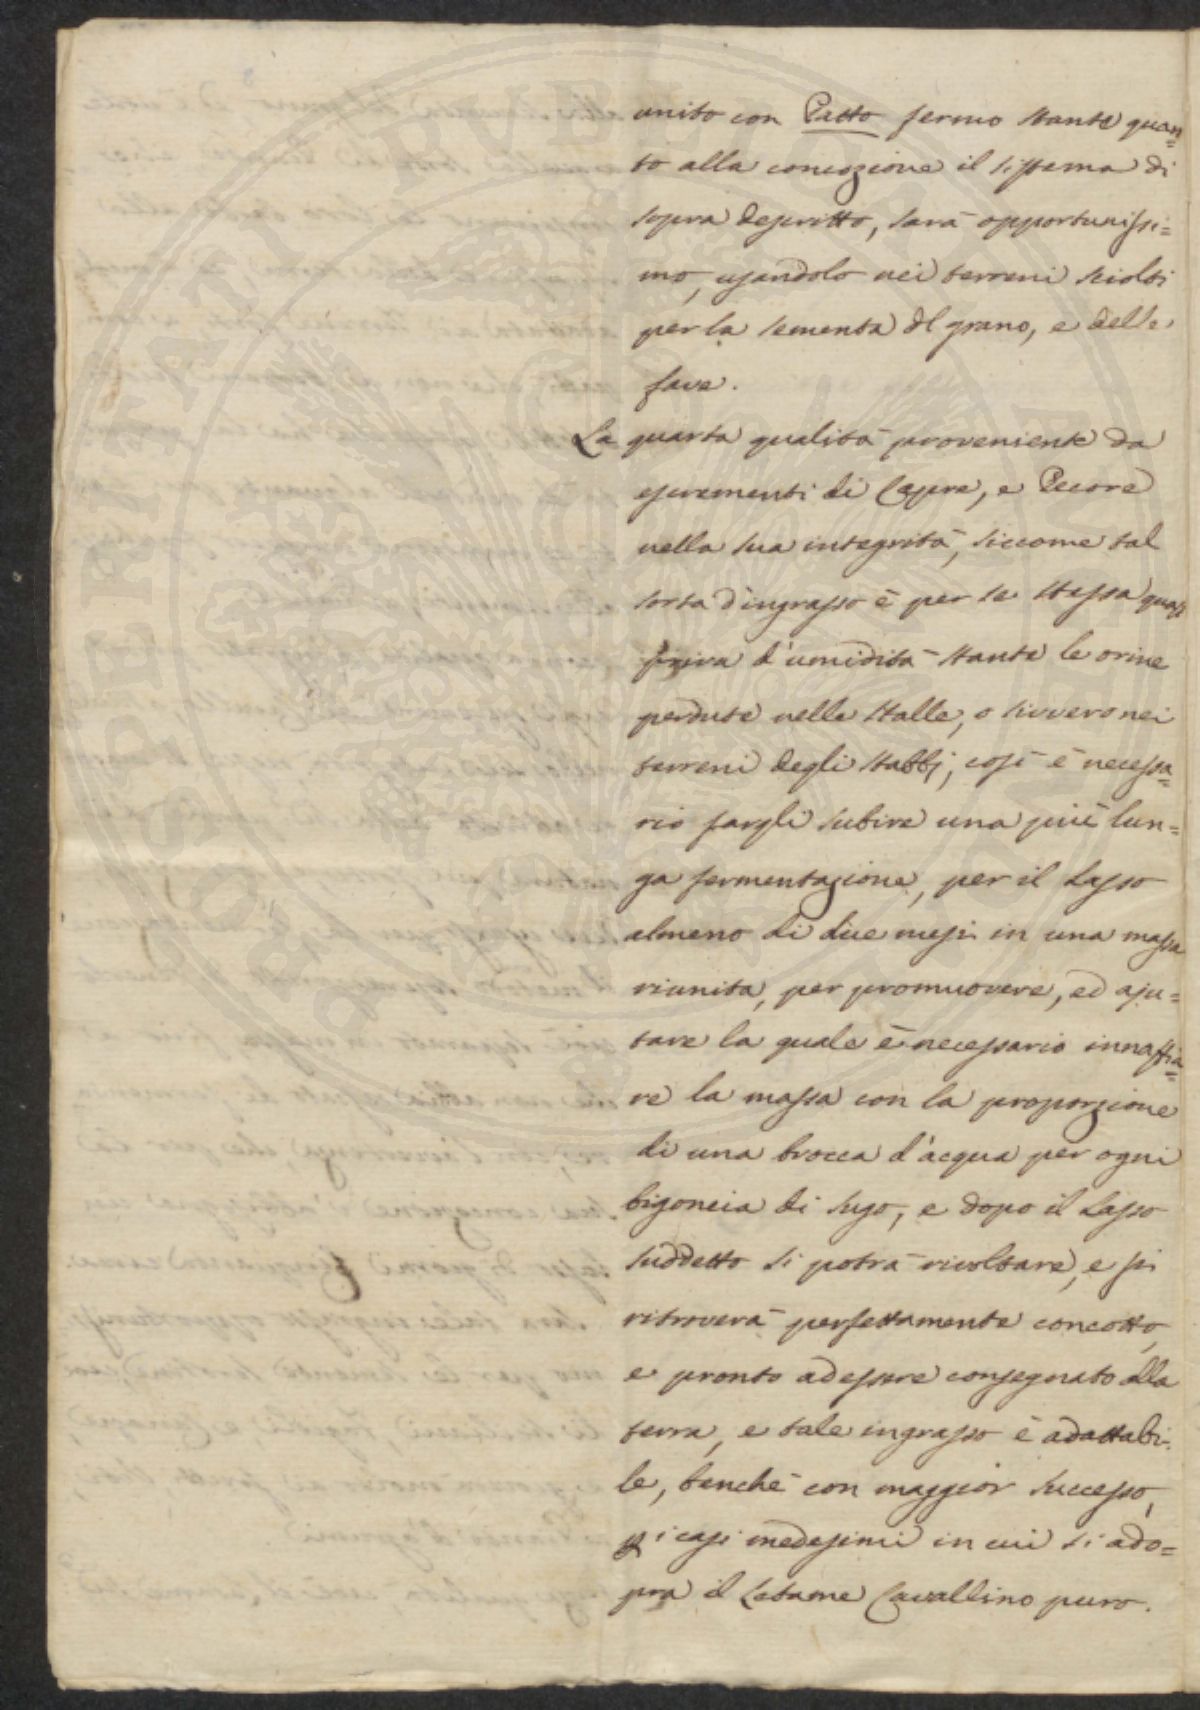 unito con Patto fermo stante quan=
to alla concozione il sistema di
sopra descritto, sarà opportunissi=
mo, usandolo nei terreni sciolti
per la sementa del grano, e delle
fave.
La quarta qualità proveniente da
escrementi di Capre, e Pecore
nella sua integrità, siccome tal
sorta d'ingrasso è per se stessa quasi
priva d'umidità stante le orine
perdute nelle stalle, o sivvero nei
terreni degli stabbj, così è necessa=
rio fargli subire una più lun=
ga fermentazione, per il lasso
almeno di due mesi in una massa
riunita, per promuovere, ed aju=
tare la quale è necessario innaffia=
re la massa con la proporzione
di una brocca d'acqua per ogni
bigoncia di sugo, e dopo il lasso
suddetto si potrà rivoltare, e si
ritroverà perfettamente concotto,
e pronto ad essere consegnato alla
terra, e tale ingrasso è adattabi=
le, benchè con maggior successo,
i casi medesimi in cui si ado=
pra il Letame Cavallino puro.